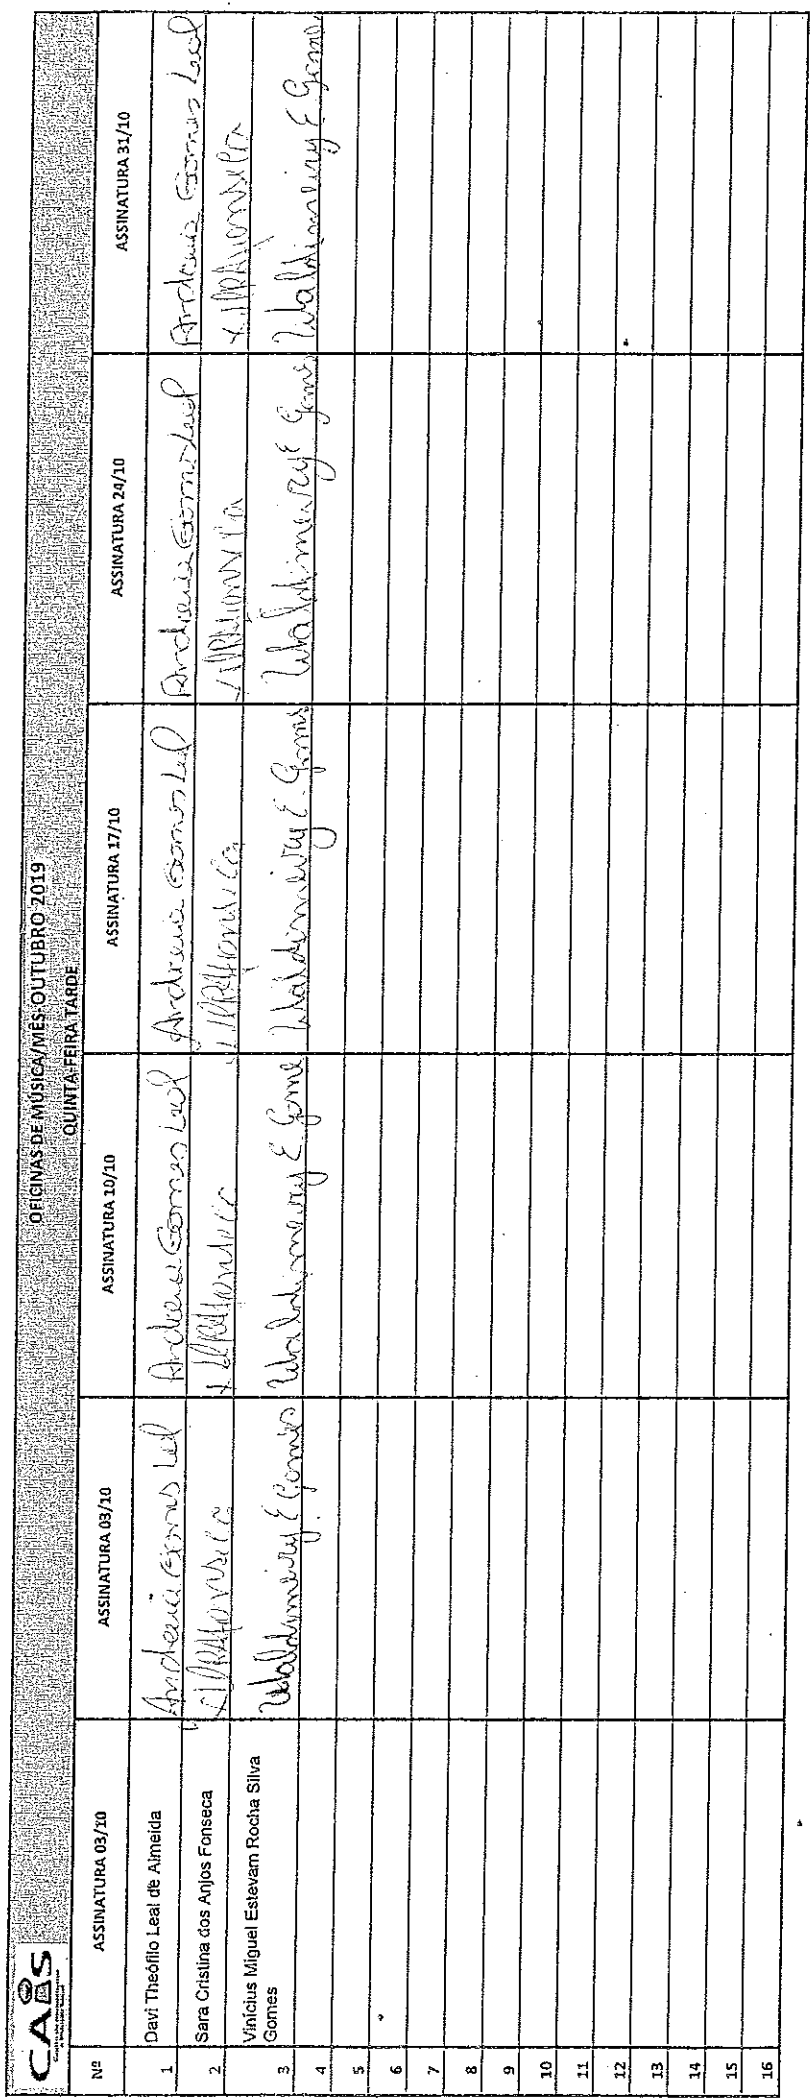 CAIS
OFICINAS DE MÚSICA/MÊS-OUTUBRO 2019
QUINTA-FEIRA TARDE
Nº ASSINATURA 03/10 ASSINATURA 03/10 ASSINATURA 10/10 ASSINATURA 17/10 ASSINATURA 24/10 ASSINATURA 31/10
1 Davi Theófilo Leal de Almeida Andreia Gomes Leal Andreia Gomes Leal Andreia Gomes Leal Andreia Gomes Leal Andreia Gomes Leal
2 Sara Cristina dos Anjos Fonseca
3 Vinícius Miguel Estevam Rocha Silva Gomes Waldimeiry E Gomes Waldimeiry E. Gome Waldimeiry E. Gomes Waldimeiry E Gomes Waldimeiry E Gomes
4
5
6
7
8
9
10
11
12
13
14
15
16